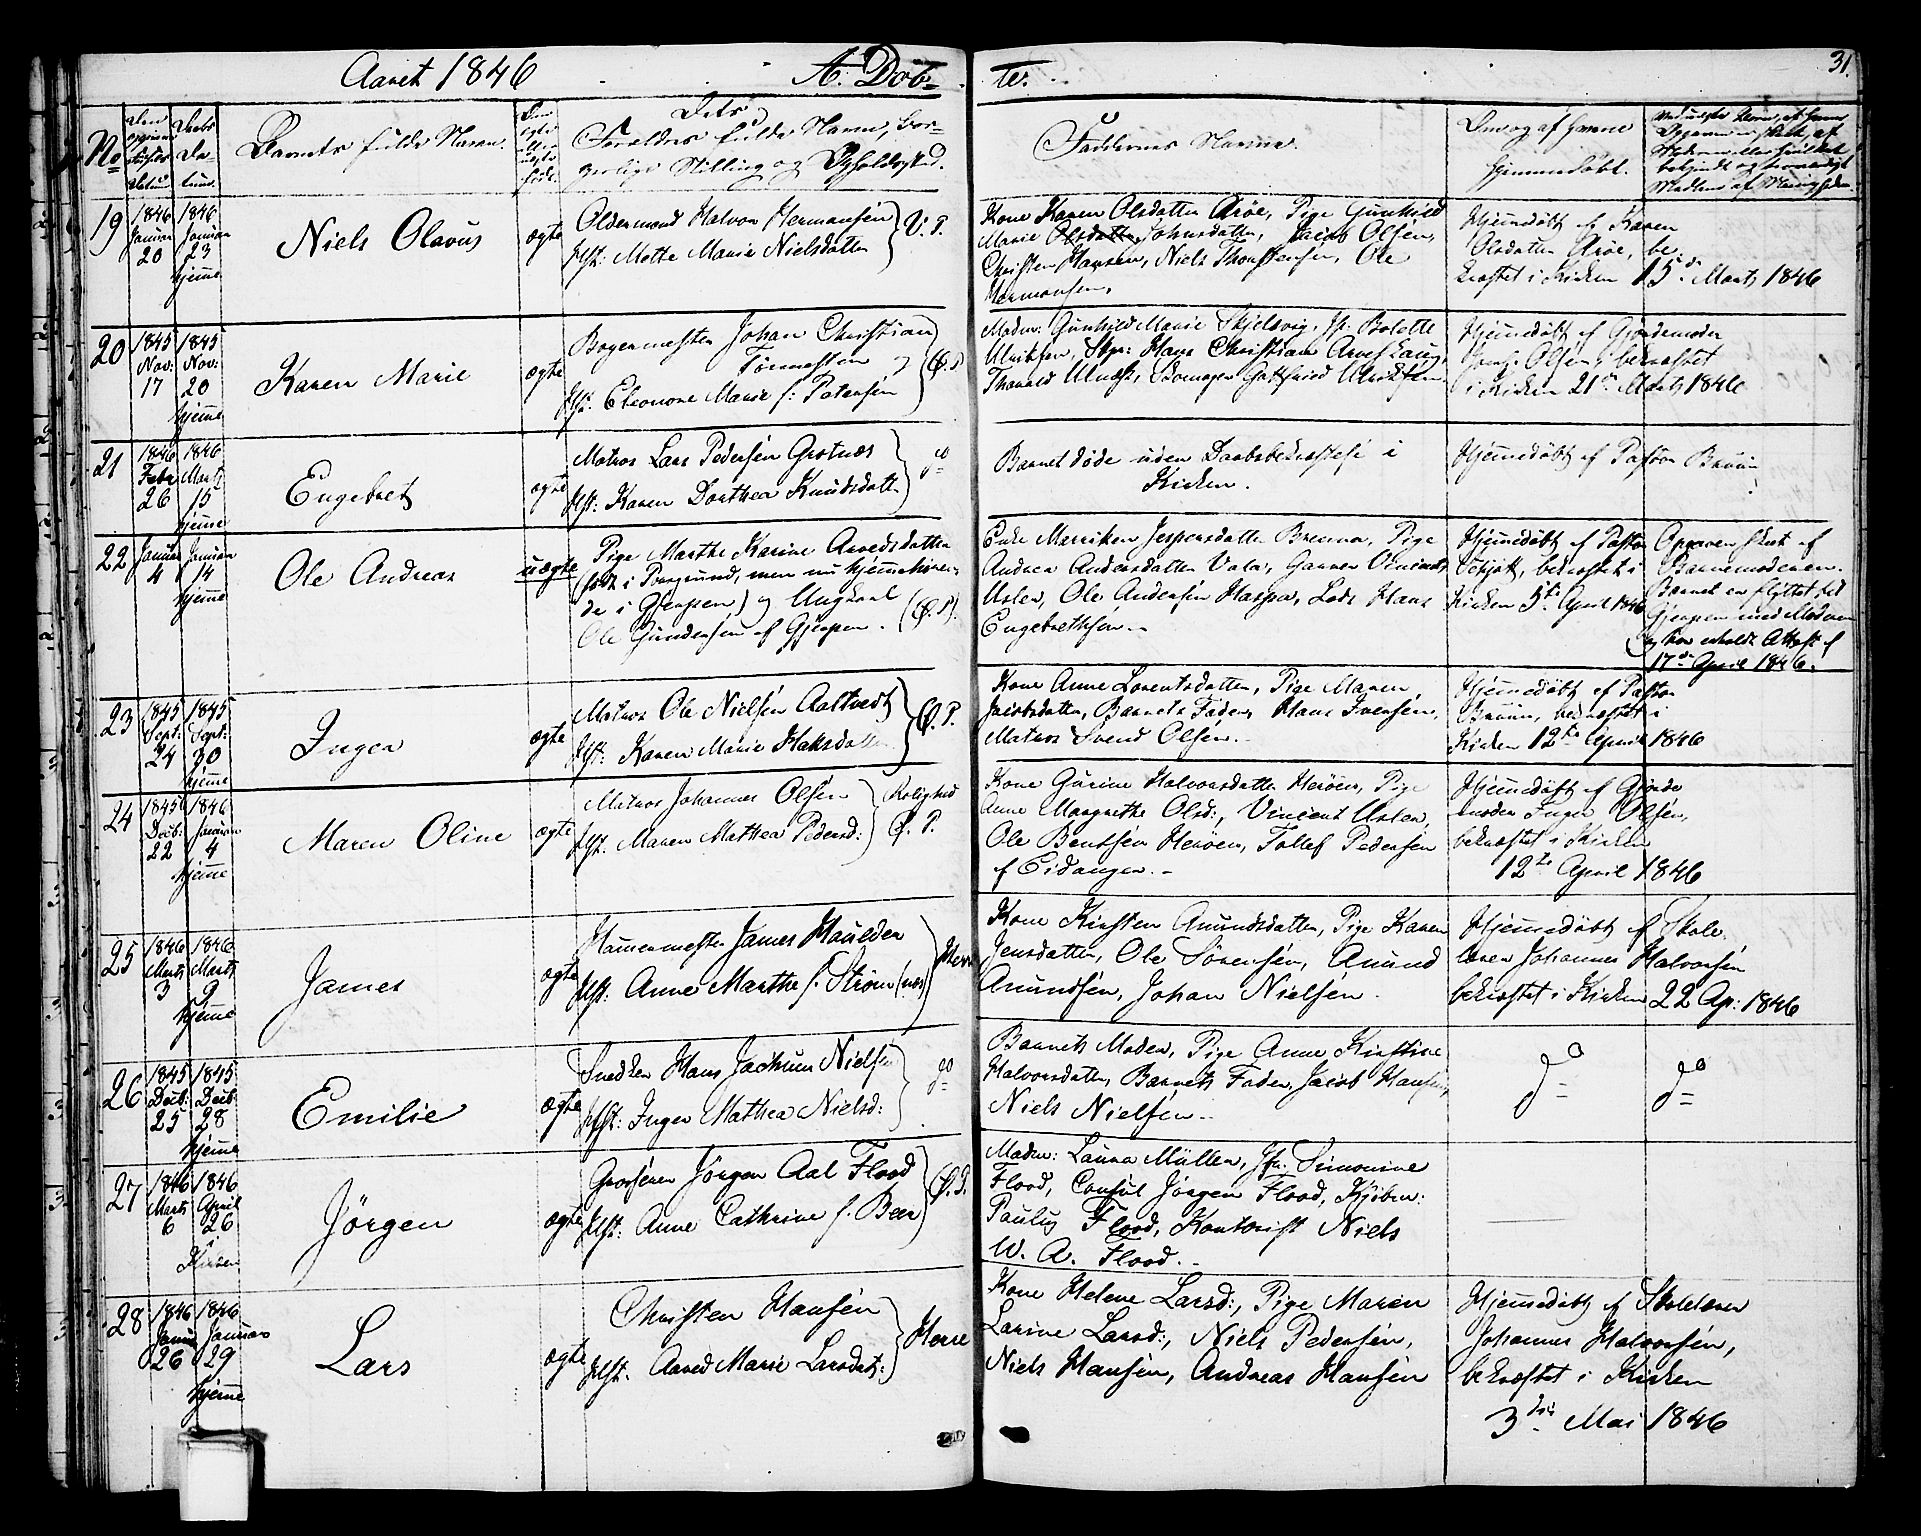 Aaret 1846 A. Døb= te. 31.
No Barnets fulde Navn. Forældres fulde Navn, bor=
gerlige Stilling og Opholdssted. Faddernes Navne. Om og af hvem
hjemmedøbt.
19 1846 Januar 20 1846 Januar 23 hjemme Niels Olavus ægte
Oldermand Halvor Hermansen
Hst: Mette Marie Nielsdatter V. P.
Kone Karen Olsdatter Arøe, Pige Gunhild
Marie Olsdatter Johnsdatter, Jacob Olsen,
Christen Hansen, Niels Thorstensen, Ole
Hermansen,
Hjemmedøbt af Karen
Olsdatter Arøe, be-
kræftet i Kirken 15de Marts 1846
20 1845 Nov: 17 1845 Nov: 20 hjemme Karen Marie ægte
Bogermester Johan Christian
Tønnessen
Hst: Eleonore Marie f: Petersen Ø. P.
Madm: Gunhild Marie Skjelsvig, Jf. Bolette
Ulriksen, Hans Christian
Gottfried Ulriksen
Hjemmedøbt af Gjordemoder
Jomf: Olsen, bekræftet
i Kirken 21de Marts 1846
21 1846 Febr 26 1846 Marts 15 hjemme Engebret ægte
Matros Lars Pedersen Grotnæs
Hst: Karen Dorthea Knudsdatter do
Barnet døde uden Daabsbekræftelse i
Kirken.
Hjemmedøbt af Pastor Bruun
22 Januar 4 Januar 14 hjemme Ole Andreas uægte
Pige Marthe Karine Arvedsdatter
(født i Porsgrund, men nu hjemmehøren-
de i Gjerpen) og Ungkarl
Ole Gundersen af Gjerpen. (Ø. P.)
Enke Marriken Jespersdatter Brenna, Pige
Andrea Andersdatter Vala, Garver Vincent
Usler, Ole Andersen Haspa, Lods Hans
Engebrethsen.
Hjemmedøbt af Pastor
bekræftet i
Kirken 5te April 1846
Opgaven skeet af
Barnemoderen.
Barnet er flyttet til
Gjerpen med Moderen
og har erholdt Attest af
17de April 1846.
23 1845 Sept: 24 1845 Sept: 30 hjemme Inger ægte
Matros Ole Nielsen Aaltvedt
Hst: Karen Marie Haksdatter Ø. P.
Kone Anne Lorentsdatter, Pige Maren
Jacobsdatter, Barnets Fader, Hans Iversen,
Matros Svend Olsen.
Hjemmedøbt af Pastor
Bruun, bekræftet i
Kirken 12te April 1846
24 1845 Decb: 22 1846 Januar 4 hjemme Maren Oline ægte
Matros Johannes Olsen Rolighed
Hst. Maren Mathea Pedersd: Ø. P.
Kone Gurine Halvorsdatter Herøen, Pige
Anne Margrethe Olsd:, Vincent Usler,
Ole Bentsen Herøen, Tollef Pedersen
af Eidanger.
Hjemmedøbt af Gjorde
moder Inger Olsen,
bekræftet i Kirken
12te April 1846
25 1846 Marts 3 1846 Marts 9 hjemme James ægte
Hammermester James Haulden
Hst: Anne Marthe f. Strøm (næs) Herre
Kone Kirsten Amundsdatter, Pige Karen
Jensdatter, Ole Sørensen, Amund
Amundsen, Johan Nielsen.
Hjemmedøbt af Skole
lærer Johannes Halvorsen
bekræftet i Kirken 22 Ap: 1846
26 1845 Decb: 25 1845 Decb: 28 hjemme Emilie ægte
Snedker Hans Jochum Nielsen
Hst: Inger Mathea Nielsd: do
Barnets Moder, Pige Anne Kirstine
Halvorsdatter, Barnets Fader, Jacob Hansen,
Niels Nielsen.
do do
27 1846 Marts 6 1846 April 26 i Kirken Jörgen ægte
Grosserer Jörgen Aal Flood
Hst: Anne Cathrine f. Beer Ø. P.
Madm: Laura Müller, Jfr. Simonine
Flood, Consul Jörgen Flood, Kjøbm:
Paulus Flood, Kontorist Niels
W. A. Flood.
28 1846 Januar 26 1846 Januar 29 hjemme Lars ægte
Christen Hansen
Hst. Anne Marie Larsdat: Herre
Kone Helene Larsd:, Pige Maren
Larine Larsd:, Niels Pedersen,
Niels Hansen, Andreas Hansen
Hjemmedøbt af Skolelærer
Johannes Halvorsen,
bekræftet i Kirken
3die Mai 1846